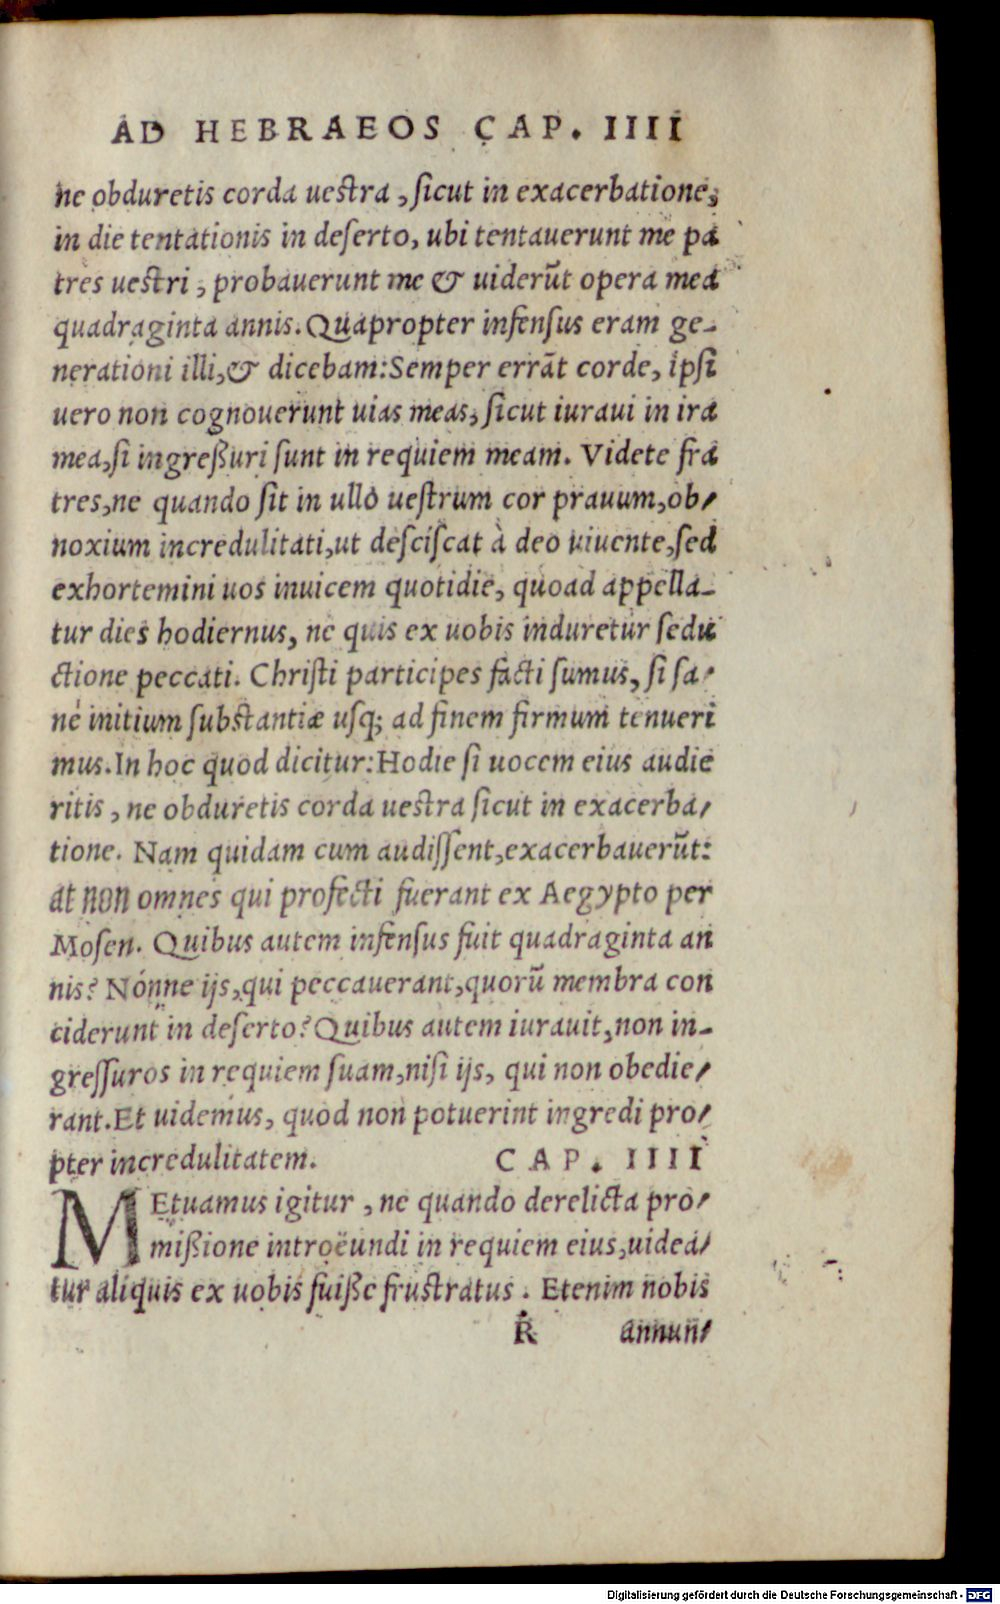 AD HEBRAEOS CAP. IIII
ne obduretis corda uestra, sicut in exacerbatione,
in die tentationis in deserto, ubi tentauerunt me pa
tres uestri, probauerunt me & uiderūt opera mea
quadraginta annis. Quapropter infensus eram ge-
nerationi illi, & dicebam: Semper errāt corde, ipsi
uero non cognouerunt uias meas, sicut iuraui in ira
mea, si ingreßuri sunt in requiem meam. Videte fra
tres, ne quando sit in ullo uestrum cor prauum, ob-
noxium incredulitati, ut desciscat à deo uiuente, sed
exhortemini uos inuicem quotidie, quoad appella-
tur dies hodiernus, ne quis ex uobis induretur sedu
ctione peccati. Christi participes facti sumus, si sa-
ne initium substantiæ usq; ad finem firmum tenueri
mus. In hoc quod dicitur: Hodie si uocem eius audie
ritis, ne obduretis corda uestra sicut in exacerba-
tione. Nam quidam cum audissent, exacerbauerūt:
at non omnes qui profecti fuerant ex Aegypto per
Mosen. Quibus autem infensus fuit quadraginta an
nis? Nónne ijs, qui peccauerant, quorū membra con
ciderunt in deserto? Quibus autem iurauit, non in-
gressuros in requiem suam, nisi ijs, qui non obedie-
rant. Et uidemus, quod non potuerint ingredi pro-
pter incredulitatem. CAP. IIII
MEtuamus igitur, ne quando derelicta pro-
mißione introëundi in requiem eius, uidea-
tur aliquis ex uobis fuiße frustratus. Etenim nobis
R annun-
Digitalisierung gefördert durch die Deutsche Forschungsgemeinschaft - DFG